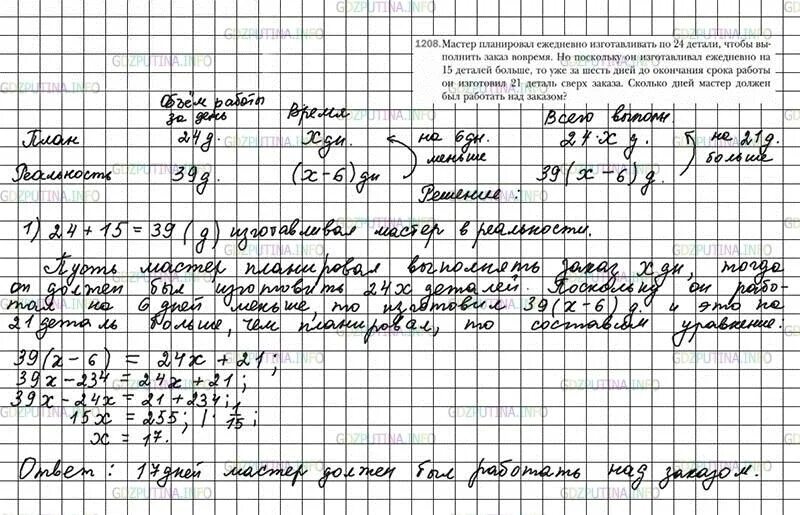 GDZPUTINA.INFO
1208. Мастер планировал ежедневно изготавливать по 24 детали, чтобы вы-
полнить заказ вовремя. Но поскольку он изготавливал ежедневно на
15 деталей больше, то уже за шесть дней до окончания срока работы
он изготовил 21 деталь сверх заказа. Сколько дней мастер должен
был работать над заказом?
Объём работы за день Время Всего выполн.
План 24д. Xдн. на 6дн. меньше 24·x д. на 21д. больше
Реальность 39д. (x-6) дн 39(x-6) д.
Решение:
1) 24 + 15 = 39 (д) изготавливал мастер в реальности.
Пусть мастер планировал выполнять заказ x дн, тогда
он должен был изготовить 24x деталей. Поскольку он рабо-
тал на 6 дней меньше, то изготовил 39(x-6) д. и это на
21 деталь больше, чем планировал, то составим уравнение:
39(x-6) = 24x + 21;
39x-234 = 24x + 21;
39x-24x = 21 + 234;
15x = 255; |· 1/15;
x = 17.
Ответ: 17 дней мастер должен был работать над заказом.